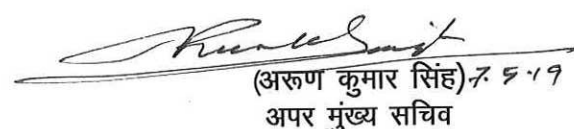 (अरूण कुमार सिंह) 7.5.19
अपर मुंख्य सचिव